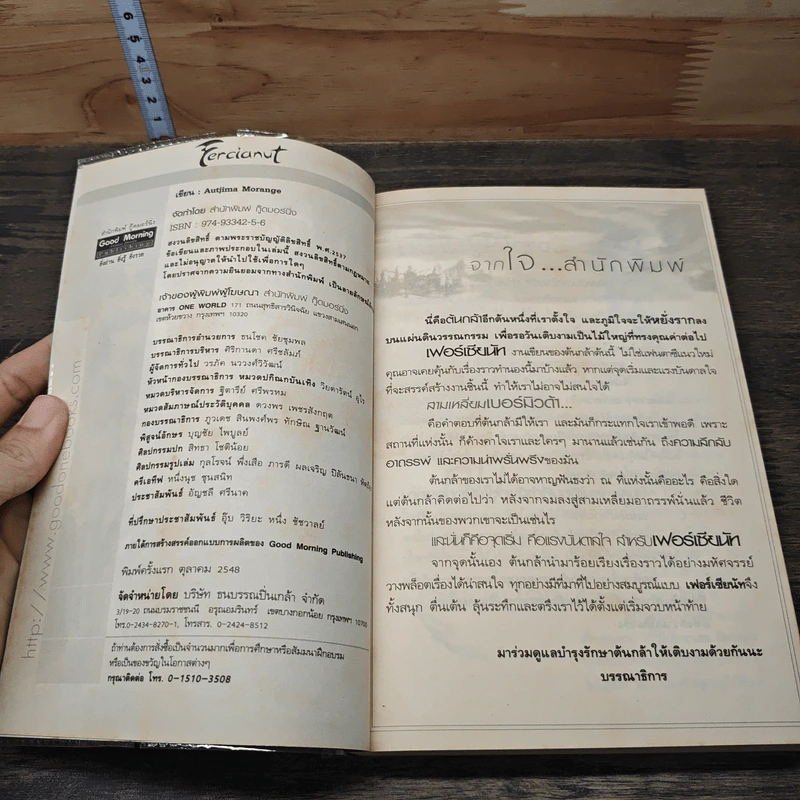 6 5 4 3 2 1
Fercianut
เขียน : Autjima Morange
จัดทำโดย สำนักพิมพ์ กู๊ดมอร์นิ่ง
ISBN : 974-93342-5-6
สงวนลิขสิทธิ์ ตามพระราชบัญญัติลิขสิทธิ์ พ.ศ.2537
ข้อเขียนและภาพประกอบในเล่มนี้ สงวนลิขสิทธิ์ตามกฎหมาย
และไม่อนุญาตให้นำไปใช้เพื่อการใดๆ
โดยปราศจากความยินยอมจากทางสำนักพิมพ์ เป็นลายลักษณ์
สำนักพิมพ์ กู๊ดมอร์นิ่ง
Good Morning
Publishing
ยิ่งอ่าน ยิ่งรู้ ยิ่งรวย
เจ้าของผู้พิมพ์ผู้โฆษณา สำนักพิมพ์ กู๊ดมอร์นิ่ง
อาคาร ONE WORLD 171 ถนนสุทธิสารวินิจฉัย แขวงสามเสนนอก
เขตห้วยขวาง กรุงเทพฯ 10320
บรรณาธิการอำนวยการ ธนโชค ชัยชุมพล
บรรณาธิการบริหาร ศิริกานดา ศรีชลัมภ์
ผู้จัดการทั่วไป วรภัค นววงศ์วิวัฒน์
หัวหน้ากองบรรณาธิการ หมวดปกิณกบันเทิง วิยดารัตน์
หมวดบริหารจัดการ ฐิตารีย์ ศรีพรหม
หมวดสัมภาษณ์ประวัติบุคคล ดวงพร เพชรสังกฤต
กองบรรณาธิการ ภูวเดช สินพงศ์พร ทักษิณ ฐานวัฒน์
พิสูจน์อักษร บุญชัย ไพบูลย์
ศิลปกรรมปก สิทธา โชติน้อย
ศิลปกรรมรูปเล่ม กุลโรจน์ พึ่งเสือ ภารดี ผลเจริญ
ครีเอทีฟ หนึ่งนุช ชุนสนิท
ประชาสัมพันธ์ อัญชลี ศรีนาค
ที่ปรึกษาประชาสัมพันธ์ อุ๊บ วิริยะ หนึ่ง ชัชวาลย์
ภายใต้การสร้างสรรค์ออกแบบการผลิตของ Good Morning Publishing
พิมพ์ครั้งแรก ตุลาคม 2548
จัดจำหน่ายโดย บริษัท ธนบรรณปิ่นเกล้า จำกัด
3/19-20 ถนนบรมราชชนนี อรุณอมรินทร์ เขตบางกอกน้อย กรุงเทพฯ 10700
โทร.0-2434-8270-1, โทรสาร. 0-2424-8512
ถ้าท่านต้องการสั่งซื้อเป็นจำนวนมากเพื่อการศึกษาหรือสัมมนาฝึกอบรม
หรือเป็นของขวัญในโอกาสต่างๆ
กรุณาติดต่อ โทร. 0-1510-3508
จากใจ...สำนักพิมพ์
นี่คือต้นกล้าอีกต้นหนึ่งที่เราตั้งใจ และภูมิใจจะให้หยั่งรากลง
บนแผ่นดินวรรณกรรม เพื่อรอวันเติบงามเป็นไม้ใหญ่ที่ทรงคุณค่าต่อไป
เฟอร์เซียนัท งานเขียนของต้นกล้าต้นนี้ ไม่ใช่แฟนตาซีแนวใหม่
คุณอาจเคยคุ้นกับเรื่องราวทำนองนี้มาบ้างแล้ว หากแต่จุดเริ่มและแรงบันดาลใจ
ที่จะสรรค์สร้างงานชิ้นนี้ ทำให้เราไม่อาจไม่สนใจได้
สามเหลี่ยมเบอร์มิวด้า...
คือคำตอบที่ต้นกล้ามีให้เรา และมันก็กระแทกใจเราเข้าพอดี เพราะ
สถานที่แห่งนั้น ก็ค้างคาใจเราและใครๆ มานานแล้วเช่นกัน ถึงความลึกลับ
อาถรรพ์ และความน่าพรั่นพรึงของมัน
ต้นกล้าของเราไม่ได้อาจหาญฟันธงว่า ณ ที่แห่งนั้นคืออะไร คือสิ่งใด
แต่ต้นกล้าคิดต่อไปว่า หลังจากจมลงสู่สามเหลี่ยมอาถรรพ์นั่นแล้ว ชีวิต
หลังจากนั้นของพวกเขาจะเป็นเช่นไร
และนั่นก็คือจุดเริ่ม คือแรงบันดาลใจ สำหรับเฟอร์เซียนัท
จากจุดนั้นเอง ต้นกล้านำมาร้อยเรียงเรื่องราวได้อย่างมหัศจรรย์
วางพล็อตเรื่องได้น่าสนใจ ทุกอย่างมีที่มาที่ไปอย่างสมบูรณ์แบบ เฟอร์เซียนัทจึง
ทั้งสนุก ตื่นเต้น ลุ้นระทึกและตรึงเราไว้ได้ตั้งแต่เริ่มจวบหน้าท้าย
มาร่วมดูแลบำรุงรักษาต้นกล้าให้เติบงามด้วยกันนะ
บรรณาธิการ